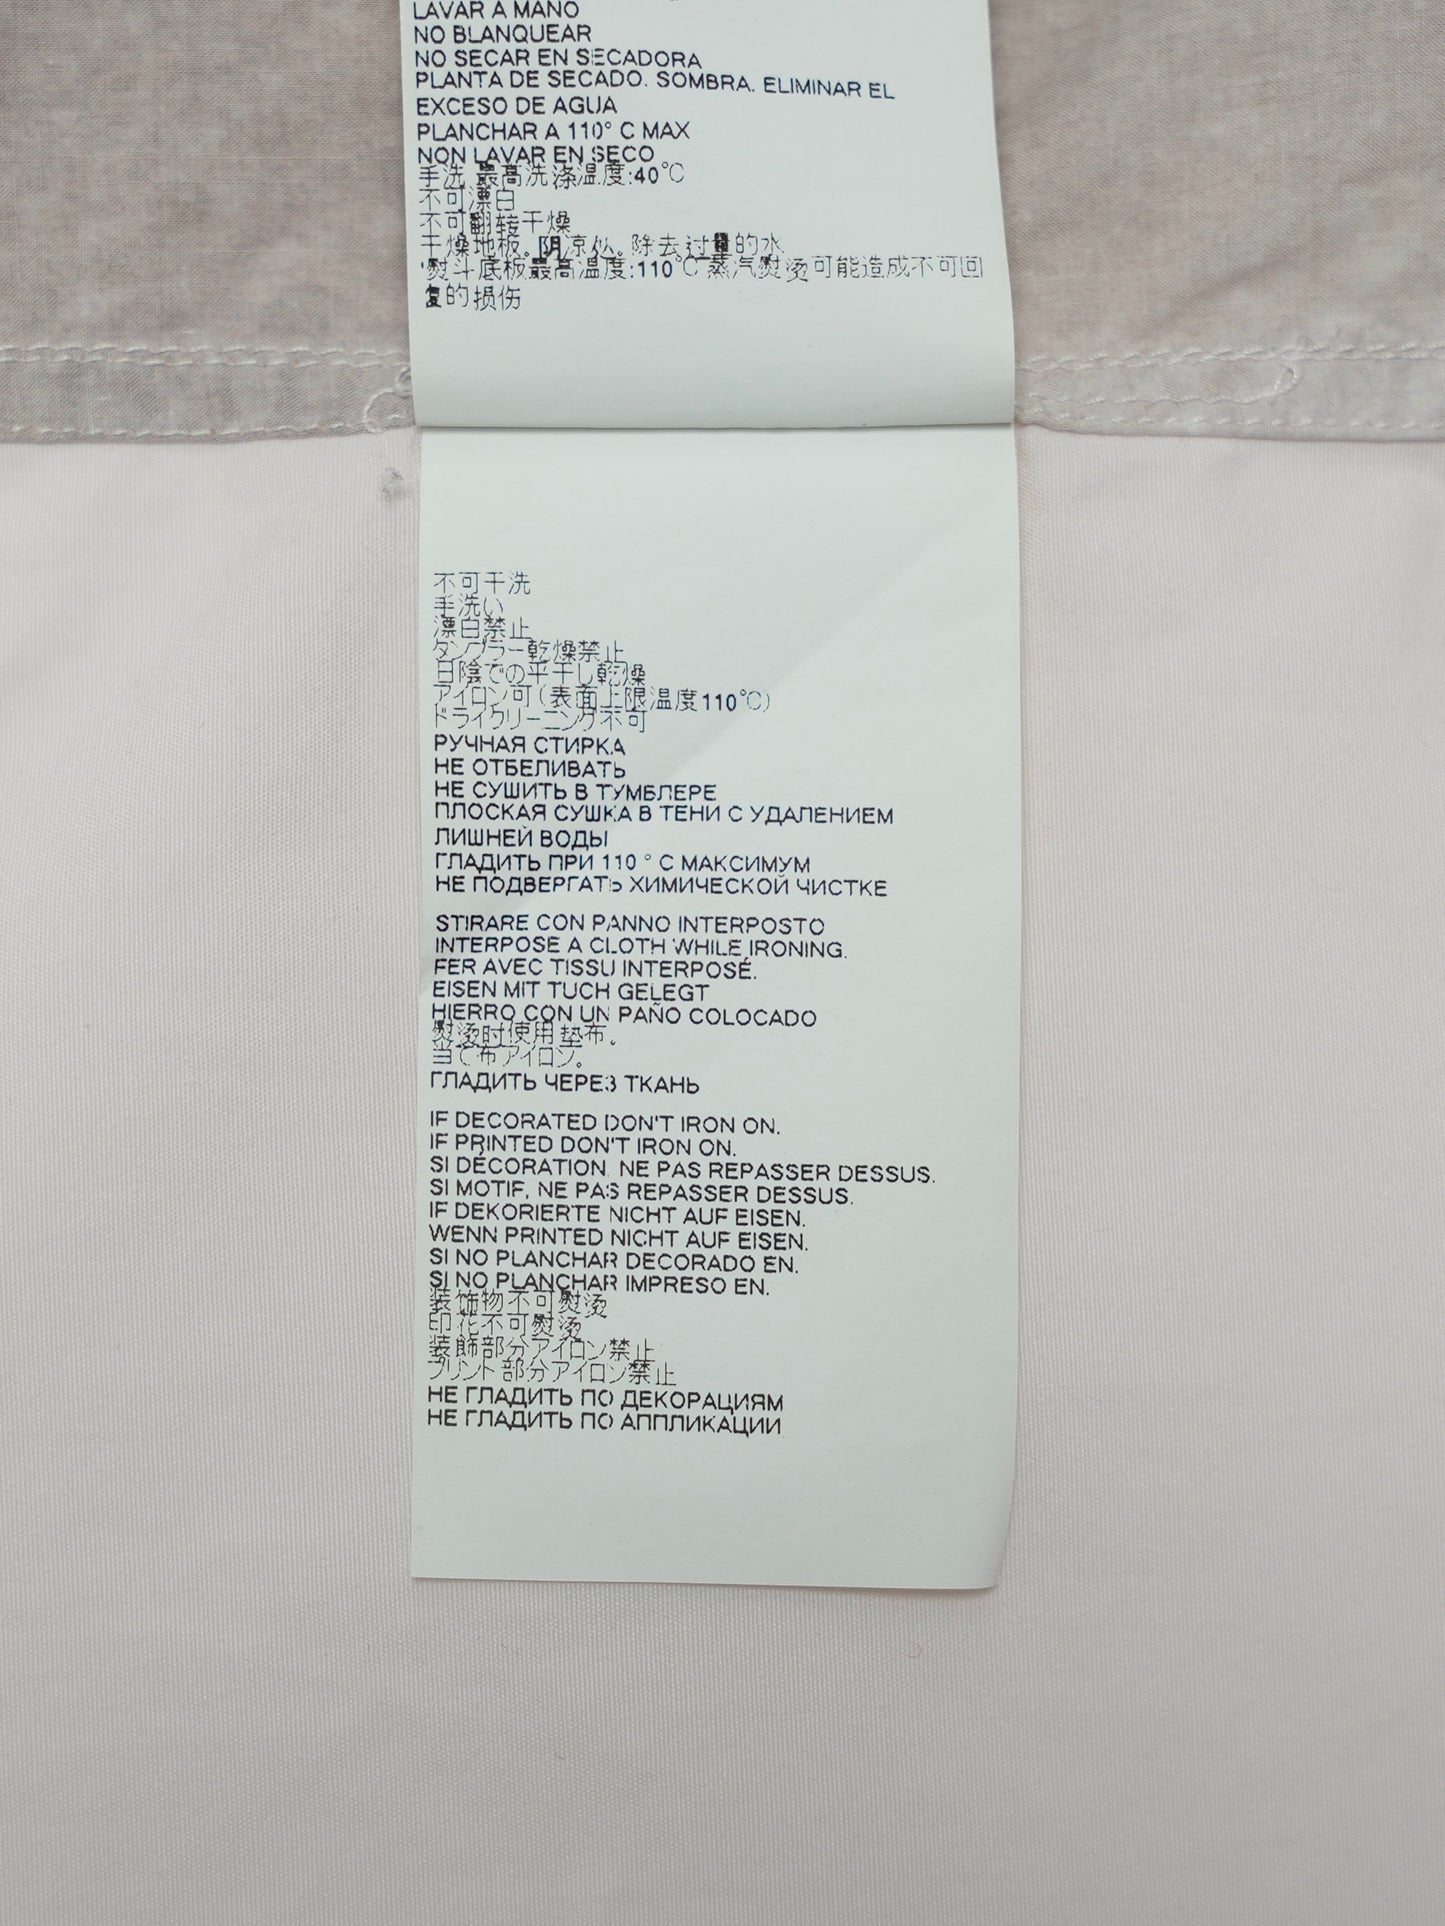 LAVAR A MANO
NO BLANQUEAR
NO SECAR EN SECADORA
PLANTA DE SECADO. SOMBRA. ELIMINAR EL
EXCESO DE AGUA
PLANCHAR A 110° C MAX
NON LAVAR EN SECO
手洗 最高洗涤温度:40℃
不可漂白
不可翻转干燥
干燥地板。阴凉处。除去过量的水
熨斗底板最高温度:110℃ 蒸汽熨烫可能造成不可回
复的损伤
不可干洗
手洗い
漂白禁止
タンブラー乾燥禁止
日陰での平干し乾燥
アイロン可(表面上限温度110℃)
ドライクリーニング不可
РУЧНАЯ СТИРКА
НЕ ОТБЕЛИВАТЬ
НЕ СУШИТЬ В ТУМБЛЕРЕ
ПЛОСКАЯ СУШКА В ТЕНИ С УДАЛЕНИЕМ
ЛИШНЕЙ ВОДЫ
ГЛАДИТЬ ПРИ 110 ° С МАКСИМУМ
НЕ ПОДВЕРГАТЬ ХИМИЧЕСКОЙ ЧИСТКЕ
STIRARE CON PANNO INTERPOSTO
INTERPOSE A CLOTH WHILE IRONING.
FER AVEC TISSU INTERPOSÉ.
EISEN MIT TUCH GELEGT
HIERRO CON UN PAÑO COLOCADO
熨烫时使用垫布。
当て布アイロン。
ГЛАДИТЬ ЧЕРЕЗ ТКАНЬ
IF DECORATED DON'T IRON ON.
IF PRINTED DON'T IRON ON.
SI DÉCORATION, NE PAS REPASSER DESSUS.
SI MOTIF, NE PAS REPASSER DESSUS.
IF DEKORIERTE NICHT AUF EISEN.
WENN PRINTED NICHT AUF EISEN.
SI NO PLANCHAR DECORADO EN.
SI NO PLANCHAR IMPRESO EN.
装饰物不可熨烫
印花不可熨烫
装飾部分アイロン禁止
プリント部分アイロン禁止
НЕ ГЛАДИТЬ ПО ДЕКОРАЦИЯМ
НЕ ГЛАДИТЬ ПО АППЛИКАЦИИ